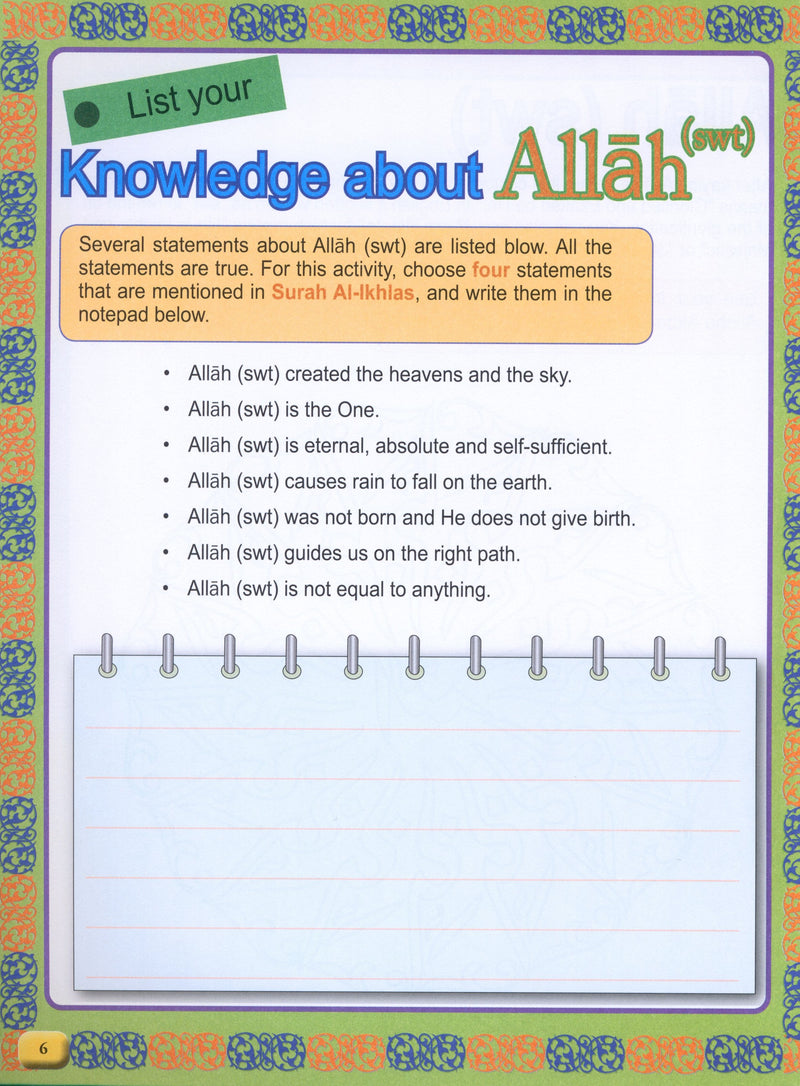 • List your
Knowledge about Allāh (swt)
Several statements about Allāh (swt) are listed blow. All the
statements are true. For this activity, choose four statements
that are mentioned in Surah Al-Ikhlas, and write them in the
notepad below.
• Allāh (swt) created the heavens and the sky.
• Allāh (swt) is the One.
• Allāh (swt) is eternal, absolute and self-sufficient.
• Allāh (swt) causes rain to fall on the earth.
• Allāh (swt) was not born and He does not give birth.
• Allāh (swt) guides us on the right path.
• Allāh (swt) is not equal to anything.
6